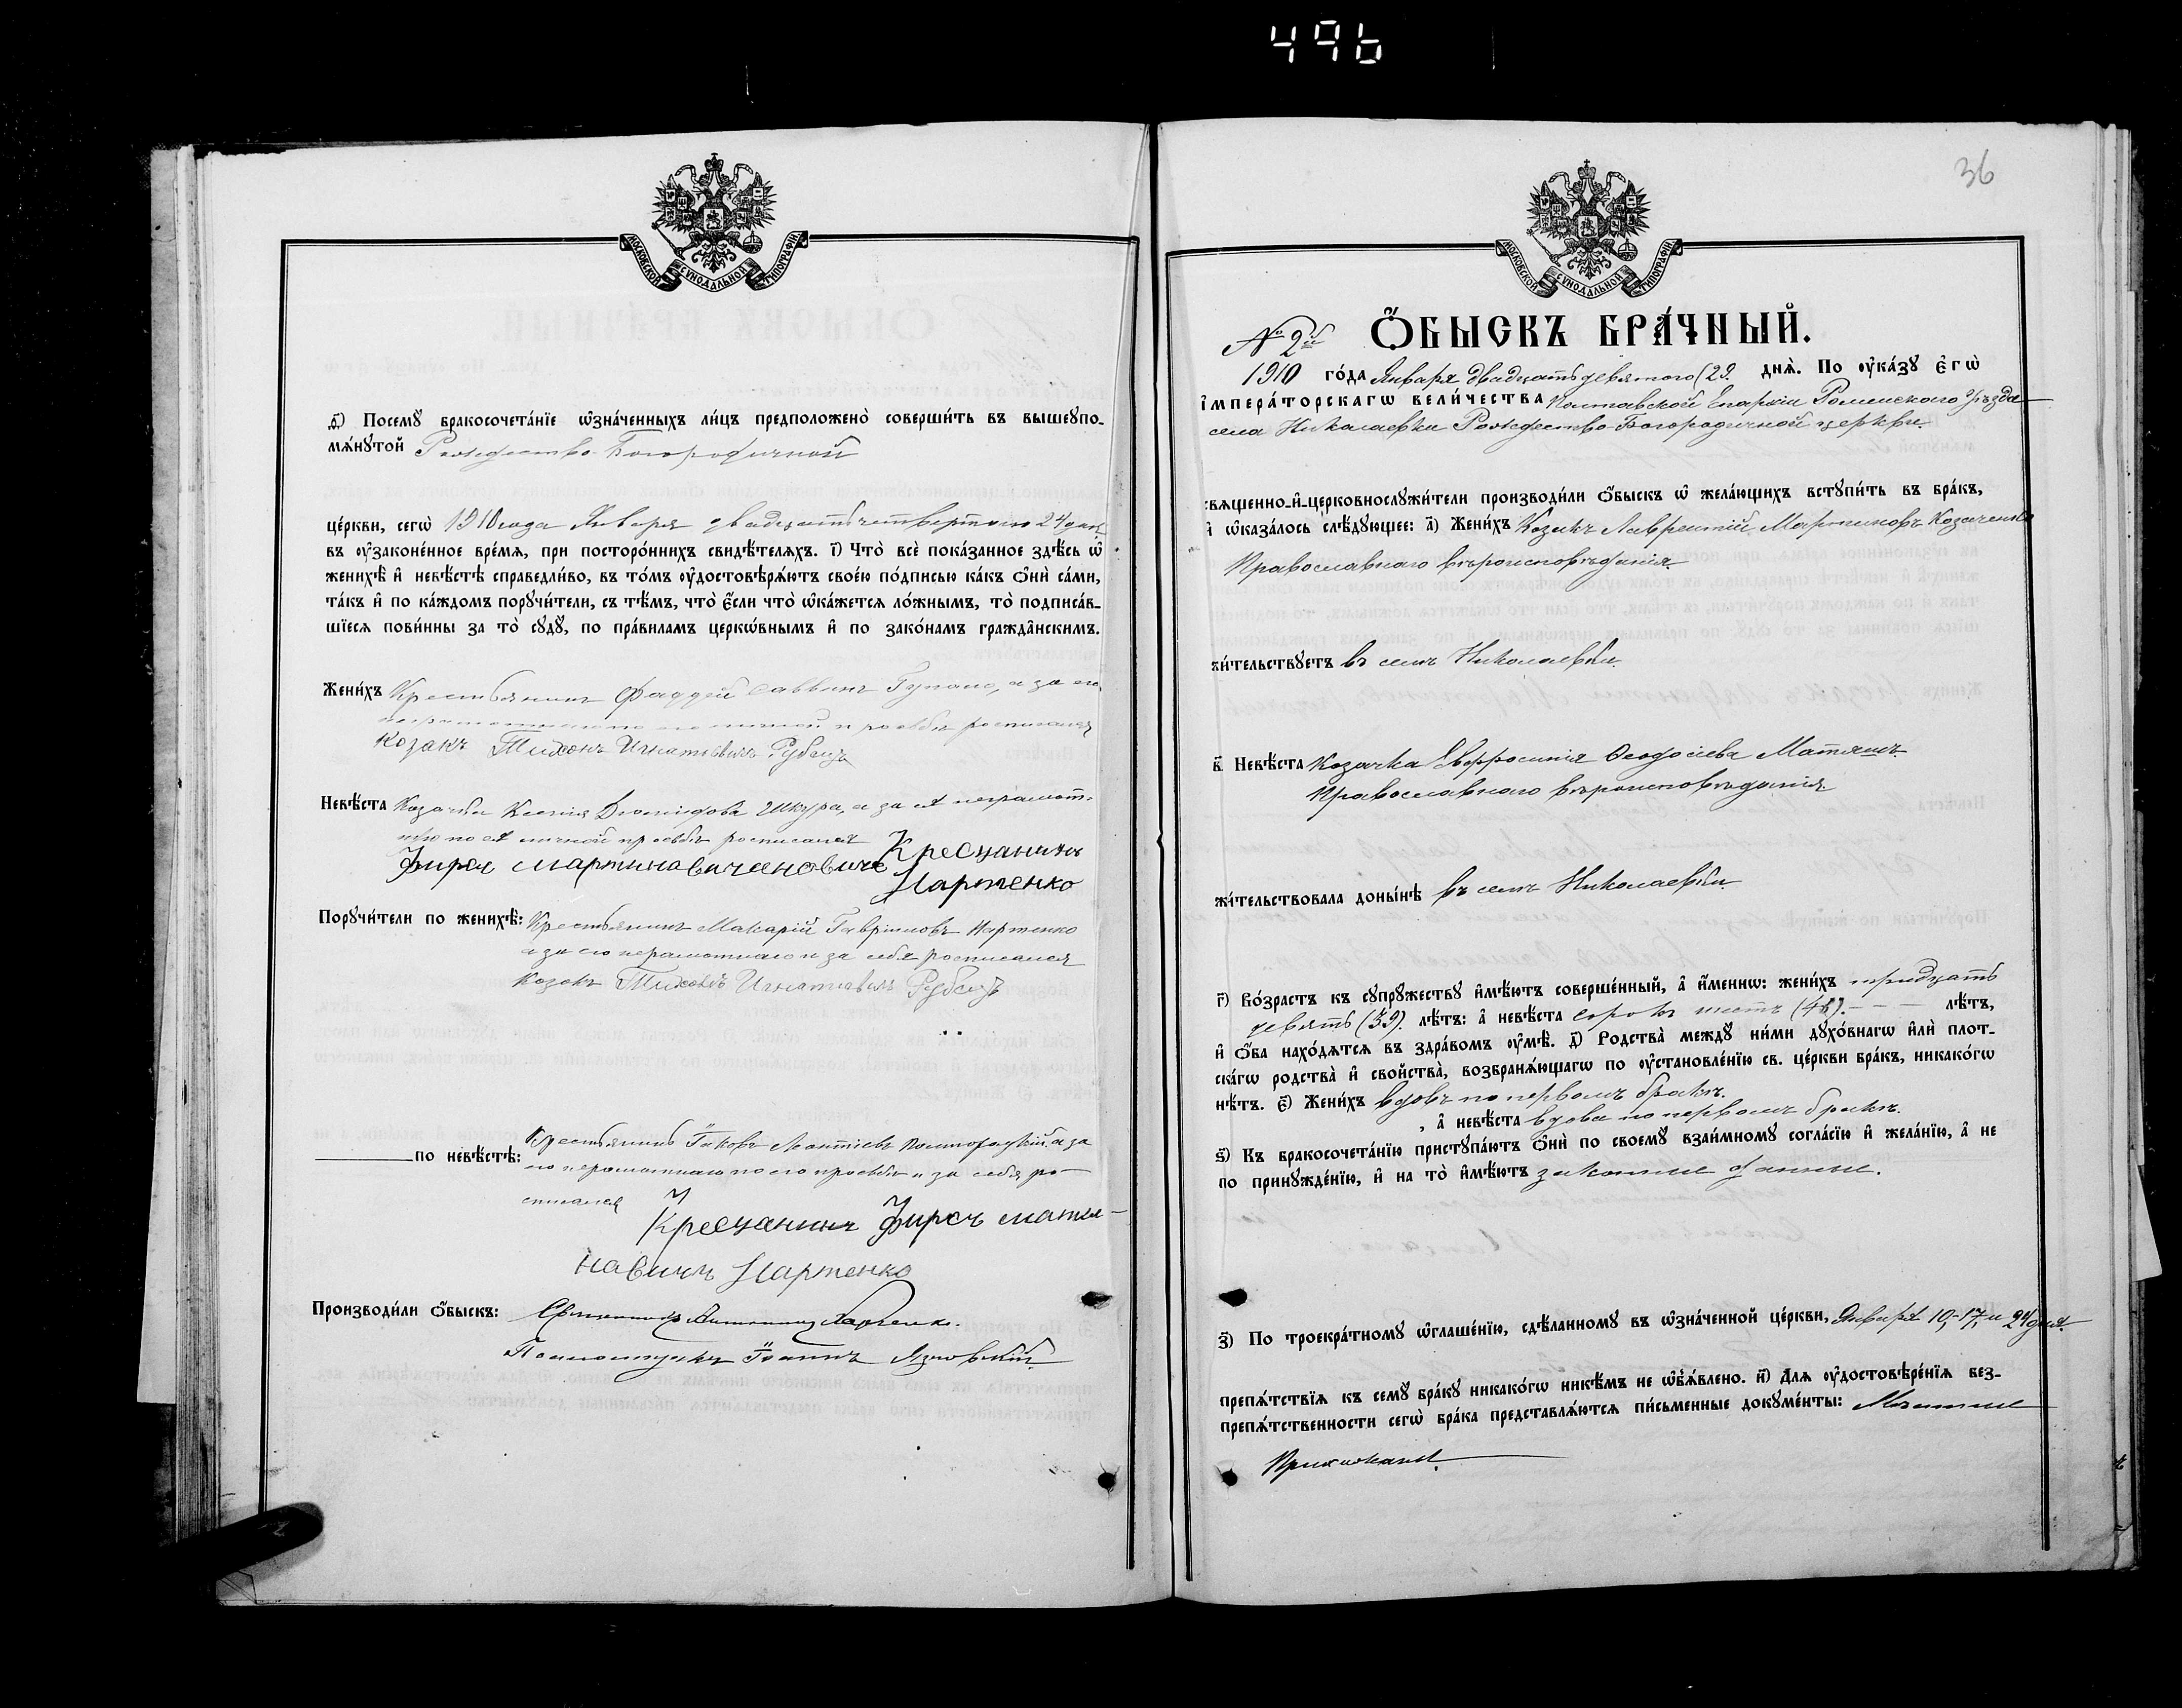 496
МОСКОВСКОЙ СѴНОДАЛЬНОЙ ТИПОГРАФІИ
ѳ҃) Посемꙋ бракосочета́нїе ѡ҆зна́ченныхъ ли́цъ предположено̀ соверши́ть въ вышеꙋпо-
мѧ́нꙋтой Рождество-Богородичной
це́ркви, сегѡ̀ 1910 года Января двадцать четвертаго 24 дня
въ ᲂу҆законе́нное вре́мѧ, при посторо́ннихъ свидѣ́телѧхъ. і҃) Что̀ всѐ пока́занное здѣ́сь ѡ҆
женихѣ̀ и҆ невѣ́стѣ справедли́во, въ то́мъ ᲂу҆достовѣрѧ́ютъ свое́ю по́дписью ка́къ ѻ҆нѝ са́ми,
та́къ и҆ по ка́ждомъ порꙋчи́тели, съ тѣ́мъ, что̀ є҆́сли что̀ ѡ҆ка́жетсѧ ло́жнымъ, то̀ подписа́в-
шїесѧ пови́нны за то̀ сꙋдꙋ̀, по пра́виламъ церко́внымъ и҆ по зако́намъ гражда̑нскимъ.
Жени́хъ Крестьянинъ Фаддей Саввинъ а за его
личной просьбѣ росписался
Козакъ Тихонъ Игнатіевичъ Рубецъ
Невѣ́ста Козачка Ксенія Діомидова Шкура, а за неграмот-
ную по личной просьбѣ росписался
Фирсъ Кресцанинъ
Нартенко
Порꙋчи́тели по женихѣ̀: Крестьянинъ Макарій Гавріиловъ Нартенко
а за его неграмотнаго и за себя росписался
Козакъ Тихонъ Игнатіевичъ Рубецъ
по невѣ́стѣ: Крестьянинъ Іаковъ а за
его неграмотнаго по его просьбѣ и за себя ро-
списался
Кресцанинъ Фирсъ
навичъ Нартенко
Производи́ли ѻ҆́быскъ: Священникъ
Псаломщикъ Іоаннъ
36
МОСКОВСКОЙ СѴНОДАЛЬНОЙ ТИПОГРАФІИ
№ 2й Ѻ҆́БЫСКЪ БРА́ЧНЫЙ.
1910 го́да Января двадцать девятого (29. днѧ̀. По ᲂу҆ка́зꙋ є҆гѡ̀
і҆мпера́торскагѡ вели́чества Полтавской Епархіи Роменскаго Уѣзда
села Николаевки Рождество-Богородичной церкви
свѧщенно-и҆-церковнослꙋжи́тели производи́ли ѻ҆́быскъ ѡ҆ жела́ющихъ встꙋпи́ть въ бра́къ,
и҆ ѡ҆каза́лось слѣ́дꙋющее: а҃) Жени́хъ Козакъ Лаврентій Мартиновъ Козаченко
Православнаго вѣроисповѣданія.
жи́тельствꙋетъ въ селѣ Николаевки.
в҃) Невѣ́ста Козачка Евфросинія Ѳеодосіева Матяшъ.
Православнаго вѣроисповѣданія.
жи́тельствовала доны́нѣ въ селѣ Николаевки.
г҃) Во́зрастъ къ сꙋпрꙋ́жествꙋ и҆мѣ́ютъ соверше́нный, а҆ и҆́меннѡ: жени́хъ тридцать
девять (39). лѣ́тъ: а҆ невѣ́ста сорокъ шесть (46). - - - лѣ́тъ,
и҆ ѻ҆́ба нахо́дѧтсѧ въ здра́вомъ ᲂу҆мѣ̀. д҃) Родства̀ междꙋ̀ ни́ми дꙋхо́внагѡ и҆лѝ плот-
ска́гѡ родства̀ и҆ сво́йства̀, возбранѧ́ющагѡ по ᲂу҆становле́нїю св. це́ркви бра́къ, никако́гѡ
нѣ́тъ. є҃) Жени́хъ вдовъ по первомъ бракѣ.
, а҆ невѣ́ста вдова по первомъ бракѣ.
ѕ҃) Къ бракосочета́нїю пристꙋпа́ютъ ѻ҆нѝ по своемꙋ̀ взаи́мномꙋ согла́сїю и҆ жела́нїю, а҆ не
по принꙋжде́нїю, и҆ на то̀ и҆мѣ́ютъ законные данные.
з҃) По троекра́тномꙋ ѡ҆глаше́нїю, сдѣ́ланномꙋ въ ѡ҆зна́ченной це́ркви, Января 10, 17, и 24 дня.
препѧ́тствїѧ къ семꙋ̀ бра́кꙋ никако́гѡ никѣ́мъ не ѡ҆б̾ѧ́влено. и҃) Для ᲂу҆достовѣре́нїѧ без-
препѧ́тственности сегѡ̀ бра́ка представлѧ́ютсѧ пи́сьменные докꙋме́нты: Мѣстные
Прихожане.